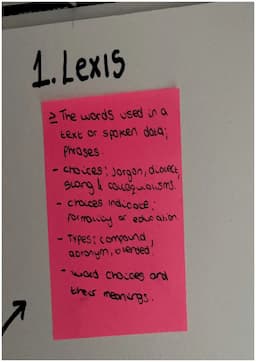 1. Lexis
≥ The words used in a
text or spoken data;
phrases.
- choices; jargon, dialect,
slang & colloquialisms.
- choices indicate;
formality or education
- Types; compound,
acronym, blended
- word choices and
their meanings.